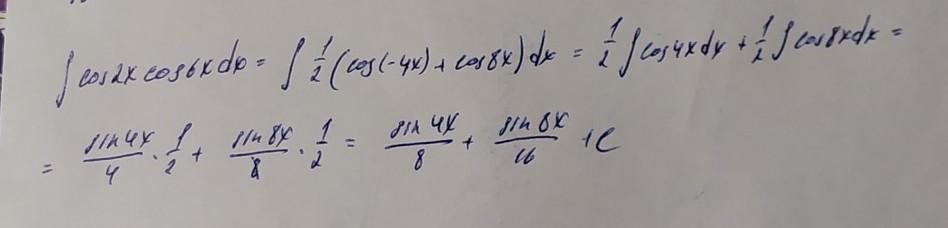 ∫ cos2x cos6x dx = ∫ 1/2 (cos(-4x) + cos8x) dx = 1/2 ∫ cos4x dx + 1/2 ∫ cos8x dx =
= sin4x/4 · 1/2 + sin8x/8 · 1/2 = sin4x/8 + sin8x/16 + C